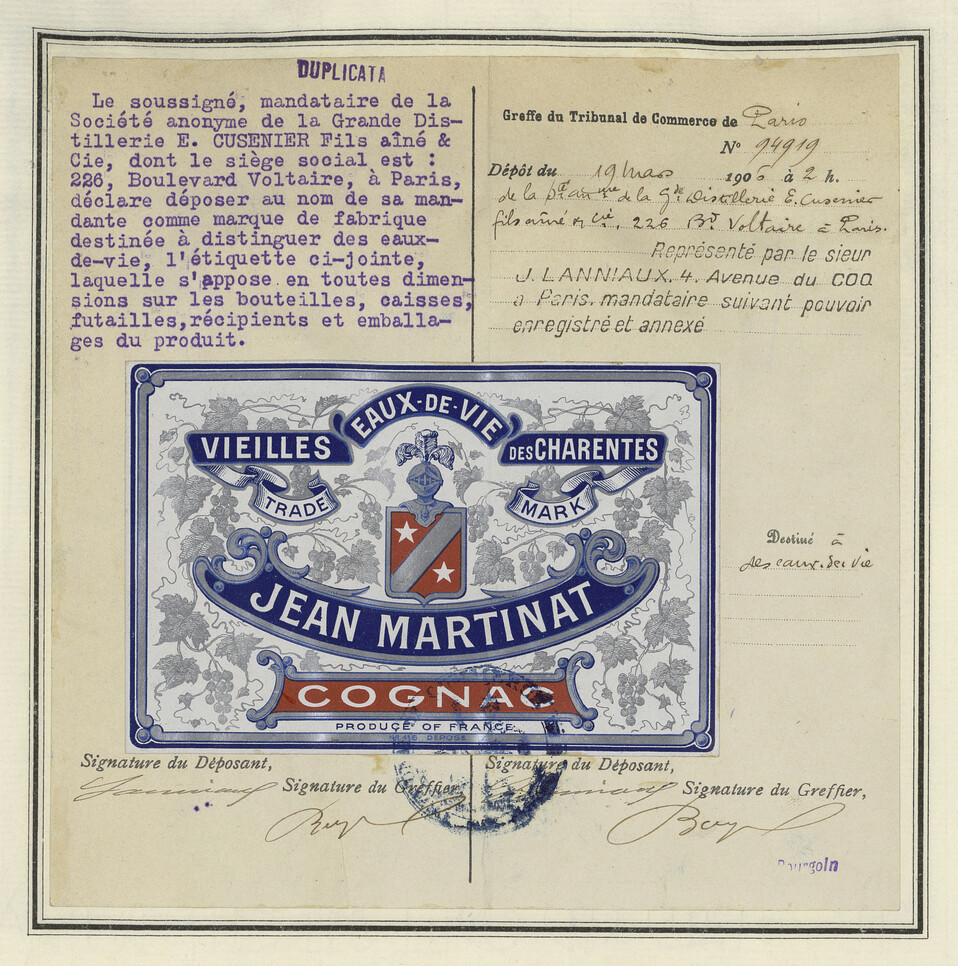 DUPLICATA
Le soussigné, mandataire de la
Société anonyme de la Grande Dis-
tillerie E. CUSENIER Fils aîné &
Cie, dont le siège social est :
226, Boulevard Voltaire, à Paris,
déclare déposer au nom de sa man-
dante comme marque de fabrique
destinée à distinguer des eaux-
de-vie, l'étiquette ci-jointe,
laquelle s'appose en toutes dimen-
sions sur les bouteilles, caisses,
futailles,récipients et emballa-
ges du produit.
Greffe du Tribunal de Commerce de Paris
N° 94919
Dépôt du 19 Mars 1906 à 2 h.
de la Sté an.me de la Gde Distillerie E. Cusenier
fils aîné & Cie, 226 Bd Voltaire à Paris.
Représenté par le sieur
J. LANNIAUX. 4. Avenue du COQ
à Paris. mandataire suivant pouvoir
enregistré et annexé
VIEILLES EAUX-DE-VIE DES CHARENTES
TRADE MARK
JEAN MARTINAT
COGNAC
PRODUCE OF FRANCE
DEPOSE
Destiné à
des eaux-de-vie
Signature du Déposant,
Signature du Greffier,
Signature du Déposant,
Signature du Greffier,
Bourgoin